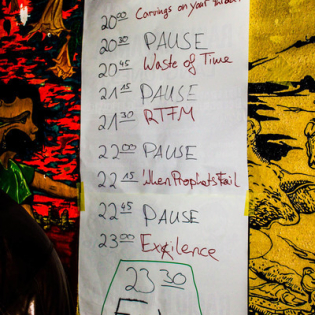 20 00 Carvings on your
20 30 PAUSE
20 45 Waste of Time
21 15 PAUSE
21 30 RTFM
22 00 PAUSE
22 15 When Prophets Fail
22 45 PAUSE
23 00 Exxilence
23 30